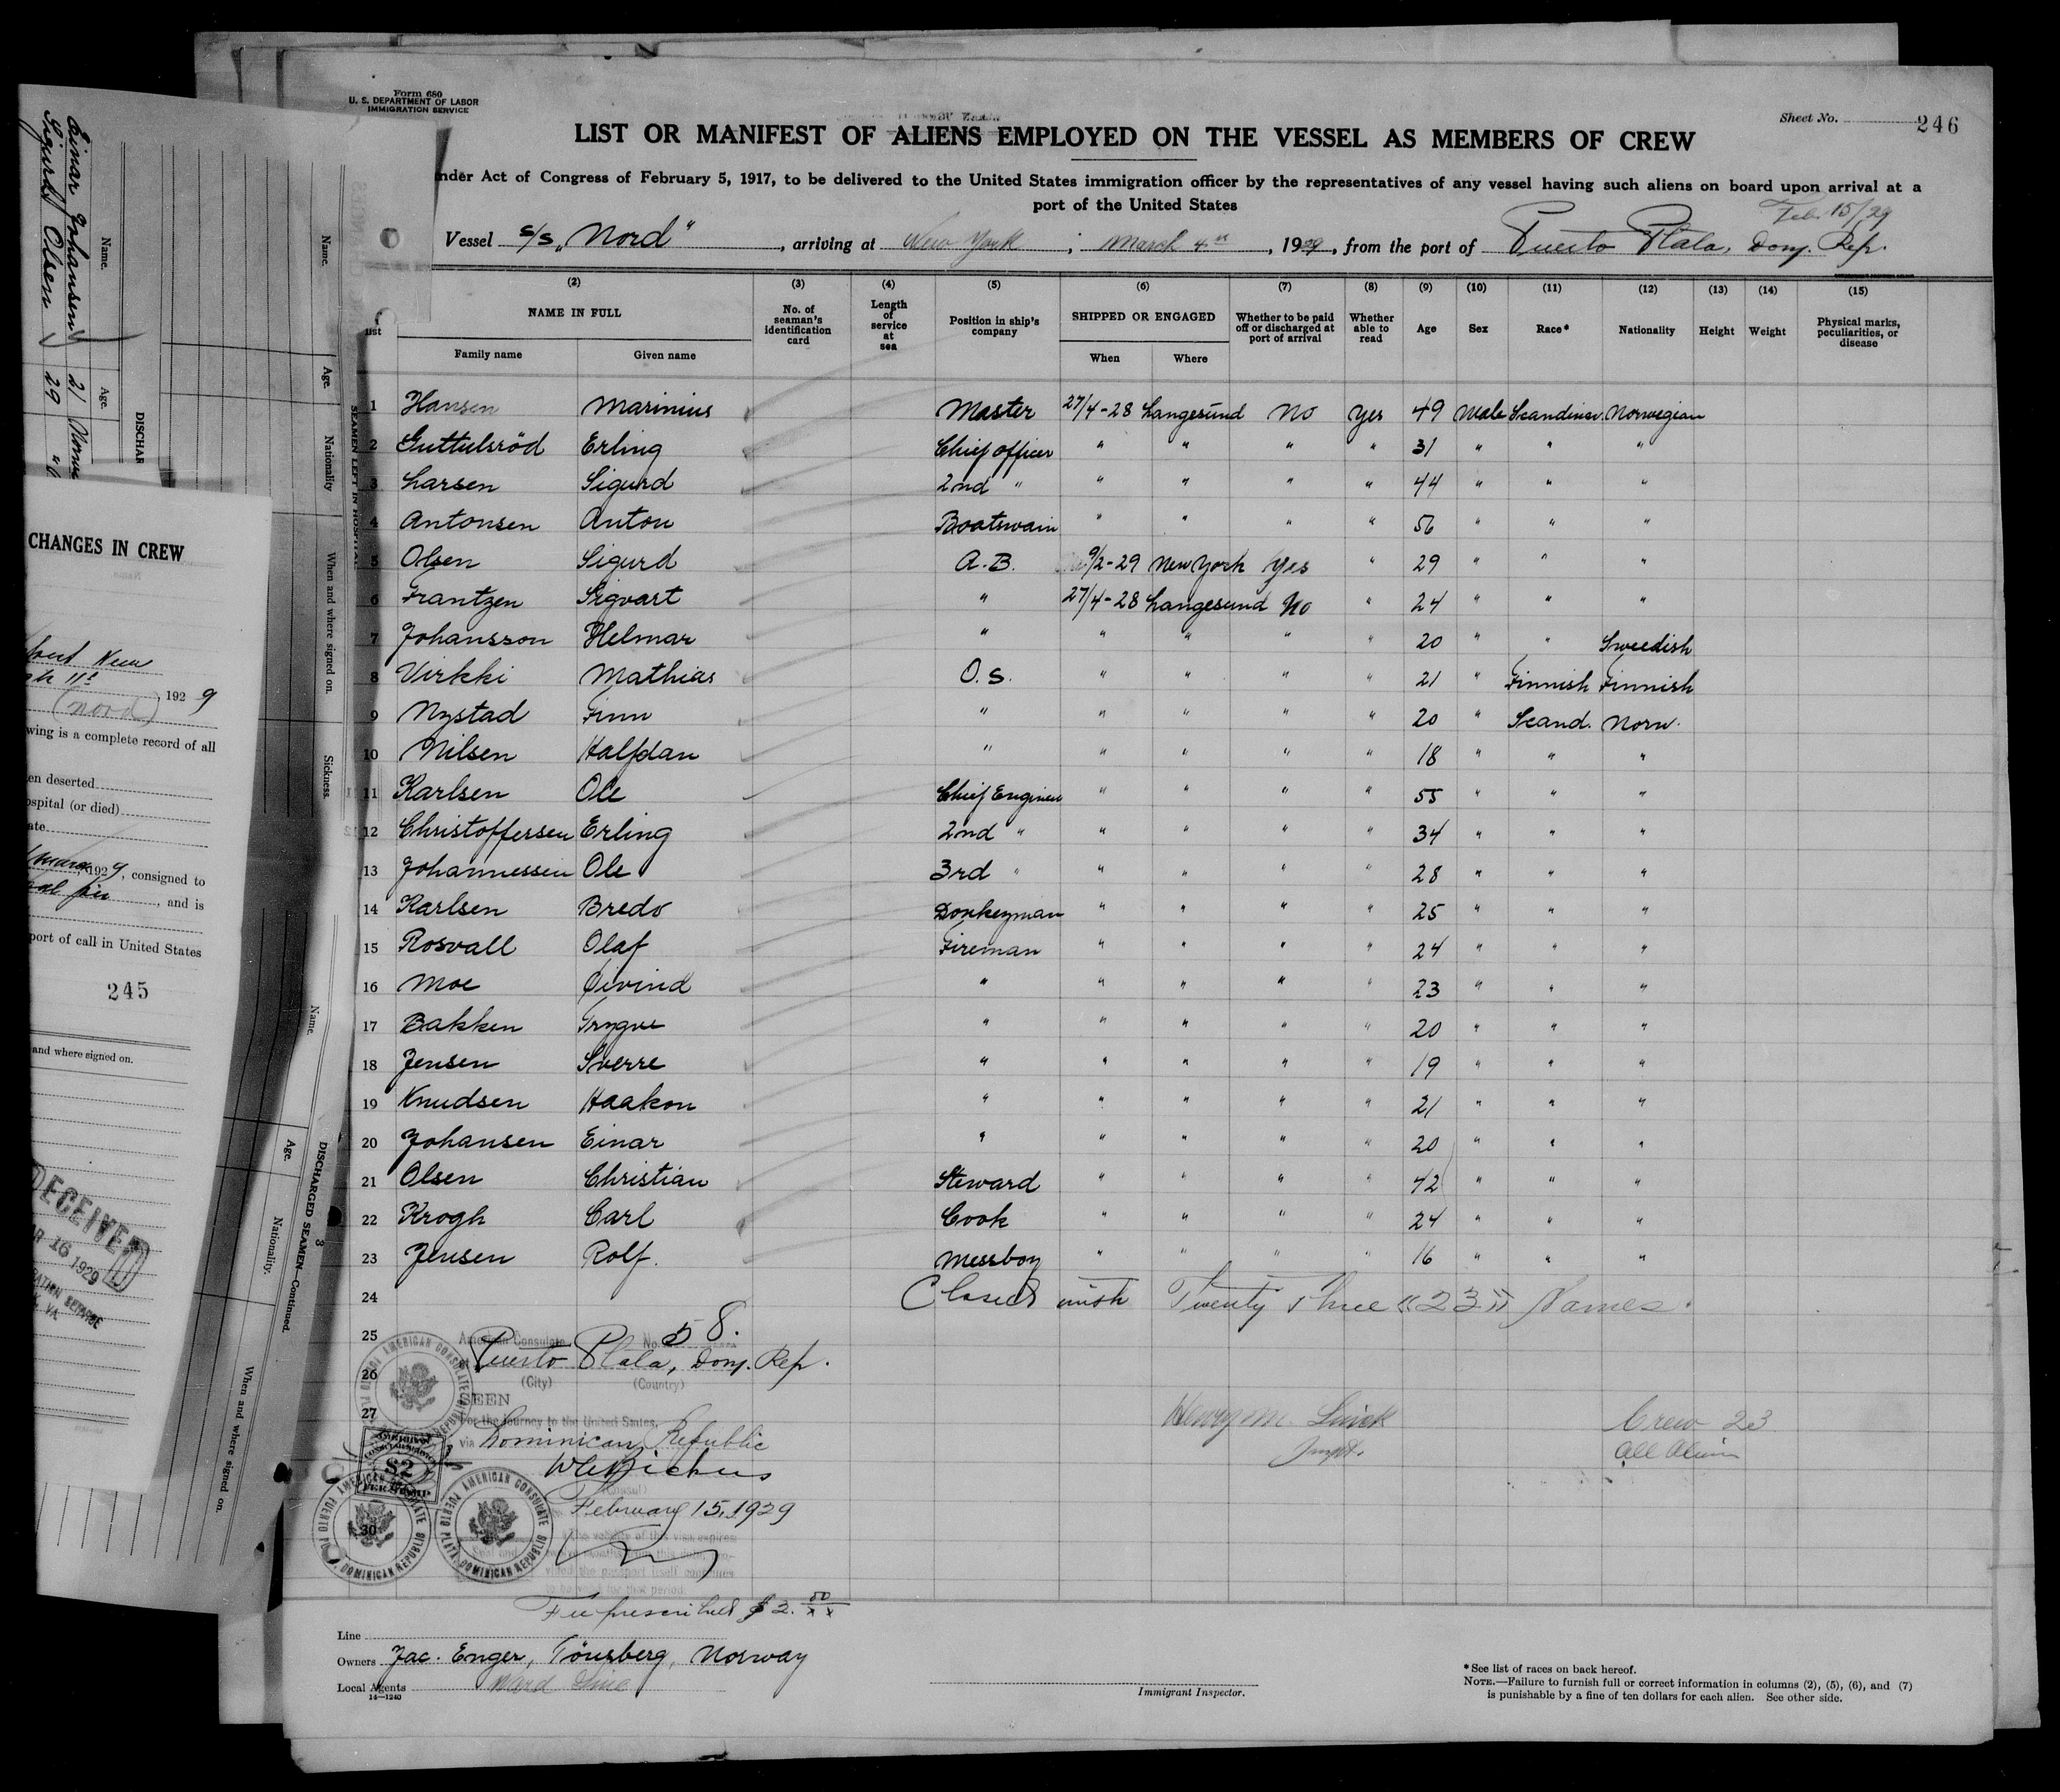 Form 680
U. S. DEPARTMENT OF LABOR
IMMIGRATION SERVICE
Sheet No. 246
LIST OR MANIFEST OF ALIENS EMPLOYED ON THE VESSEL AS MEMBERS OF CREW
nder Act of Congress of February 5, 1917, to be delivered to the United States immigration officer by the representatives of any vessel having such aliens on board upon arrival at a
port of the United States
Feb. 15/29
Vessel S/S „Nord“, arriving at New York; March 4th, 1929, from the port of Puerto Plata, Dom. Rep.
(2) (3) (4) (5) (6) (7) (8) (9) (10) (11) (12) (13) (14) (15)
list NAME IN FULL No. of seaman's identification card Length of service at sea Position in ship's company SHIPPED OR ENGAGED Whether to be paid off or discharged at port of arrival Whether able to read Age Sex Race* Nationality Height Weight Physical marks, peculiarities, or disease
Family name Given name When Where
1 Hansen Marinius Master 27/4-28 Langesund No Yes 49 Male Scandinav. Norwegian
2 Guttulsröd Erling Chief officer " " " " 31 " " "
3 Larsen Sigurd 2nd " " " " " 44 " " "
4 Antonsen Anton Boatswain " " " " 56 " " "
5 Olsen Sigurd A.B. 9/2-29 New York Yes " 29 " " "
6 Frantzen Sigvart " 27/4-28 Langesund No " 24 " " "
7 Johansson Helmar " " " " " 20 " " Sweedish
8 Virkki Mathias O.S. " " " " 21 " Finnish Finnish
9 Nystad Finn " " " " " 20 " Scand. Norw.
10 Nilsen Halfdan " " " " " 18 " " "
11 Karlsen Ole Chief Engineer " " " " 55 " " "
12 Christoffersen Erling 2nd " " " " " 34 " " "
13 Johannessen Ole 3rd " " " " " 28 " " "
14 Karlsen Bredo Donkeyman " " " " 25 " " "
15 Rosvall Olaf Fireman " " " " 24 " " "
16 Moe Øivind " " " " " 23 " " "
17 Bakken Trygve " " " " " 20 " " "
18 Jensen Sverre " " " " " 19 " " "
19 Knudsen Haakon " " " " " 21 " " "
20 Johansen Einar " " " " " 20 " " "
21 Olsen Christian Steward " " " " 42 " " "
22 Krogh Carl Cook " " " " 24 " " "
23 Jensen Rolf. Messboy " " " " 16 " " "
24 Closed with Twenty three «23» Names.
25 American Consulate No. 58.
Puerto Plata, Dom. Rep.
26 (City) (Country)
SEEN
27 For the journey to the United States,
via Dominican Republic
(Consul)
February 15, 1929
30
AMERICAN CONSULATE
PUERTO PLATA, DOMINICAN REPUBLIC
$2
FEE STAMP
Fee prescribed $2.00
Henry M.
Inspt.
Crew 23
all alien
Line
Owners Jac. Enger, Tönsberg, Norway
Local Agents Ward Line
14—1240
Immigrant Inspector.
* See list of races on back hereof.
NOTE.—Failure to furnish full or correct information in columns (2), (5), (6), and (7)
is punishable by a fine of ten dollars for each alien. See other side.
Name. Age.
Einar Johansen 21 Norw
Sigurd Olsen 29 "
DISCHAR
CHANGES IN CREW
1929
(Nord)
wing is a complete record of all
en deserted
ospital (or died)
ate
1929, consigned to
, and is
port of call in United States
245
and where signed on.
RECEIVED
MAR 16 1929
Name. Age. Nationality When and where signed on. Sickness.
SEAMEN LEFT IN HOSPITAL
3
DISCHARGED SEAMEN—Continued.
Name. Age. Nationality. When and where signed on.